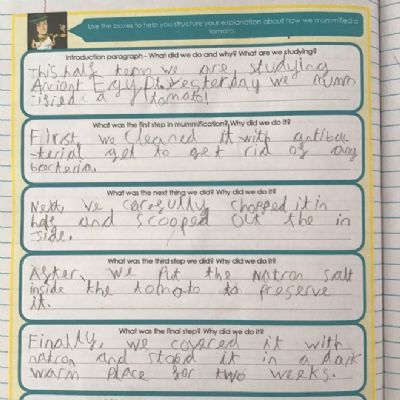 Use the boxes to help you structure your explanation about how we mummified a
tomato.
Introduction paragraph - What did we do and why? What are we studying?
This half term we are studying
Ancient Egypt. Yesterday we mumm
ified a tomato!
What was the first step in mummification? Why did we do it?
First, we cleaned it with antibac
terial gel to get rid of any
bacteria.
What was the next thing we did? Why did we do it?
Next, we carefully chopped it in
half and scooped out the in
side.
What was the third step we did? Why did we do it?
After, we put the natron salt
inside the tomato to preserve
it.
What was the final step? Why did we do it?
Finally, we covered it with
natron and stored it in a dark
warm place for two weeks.